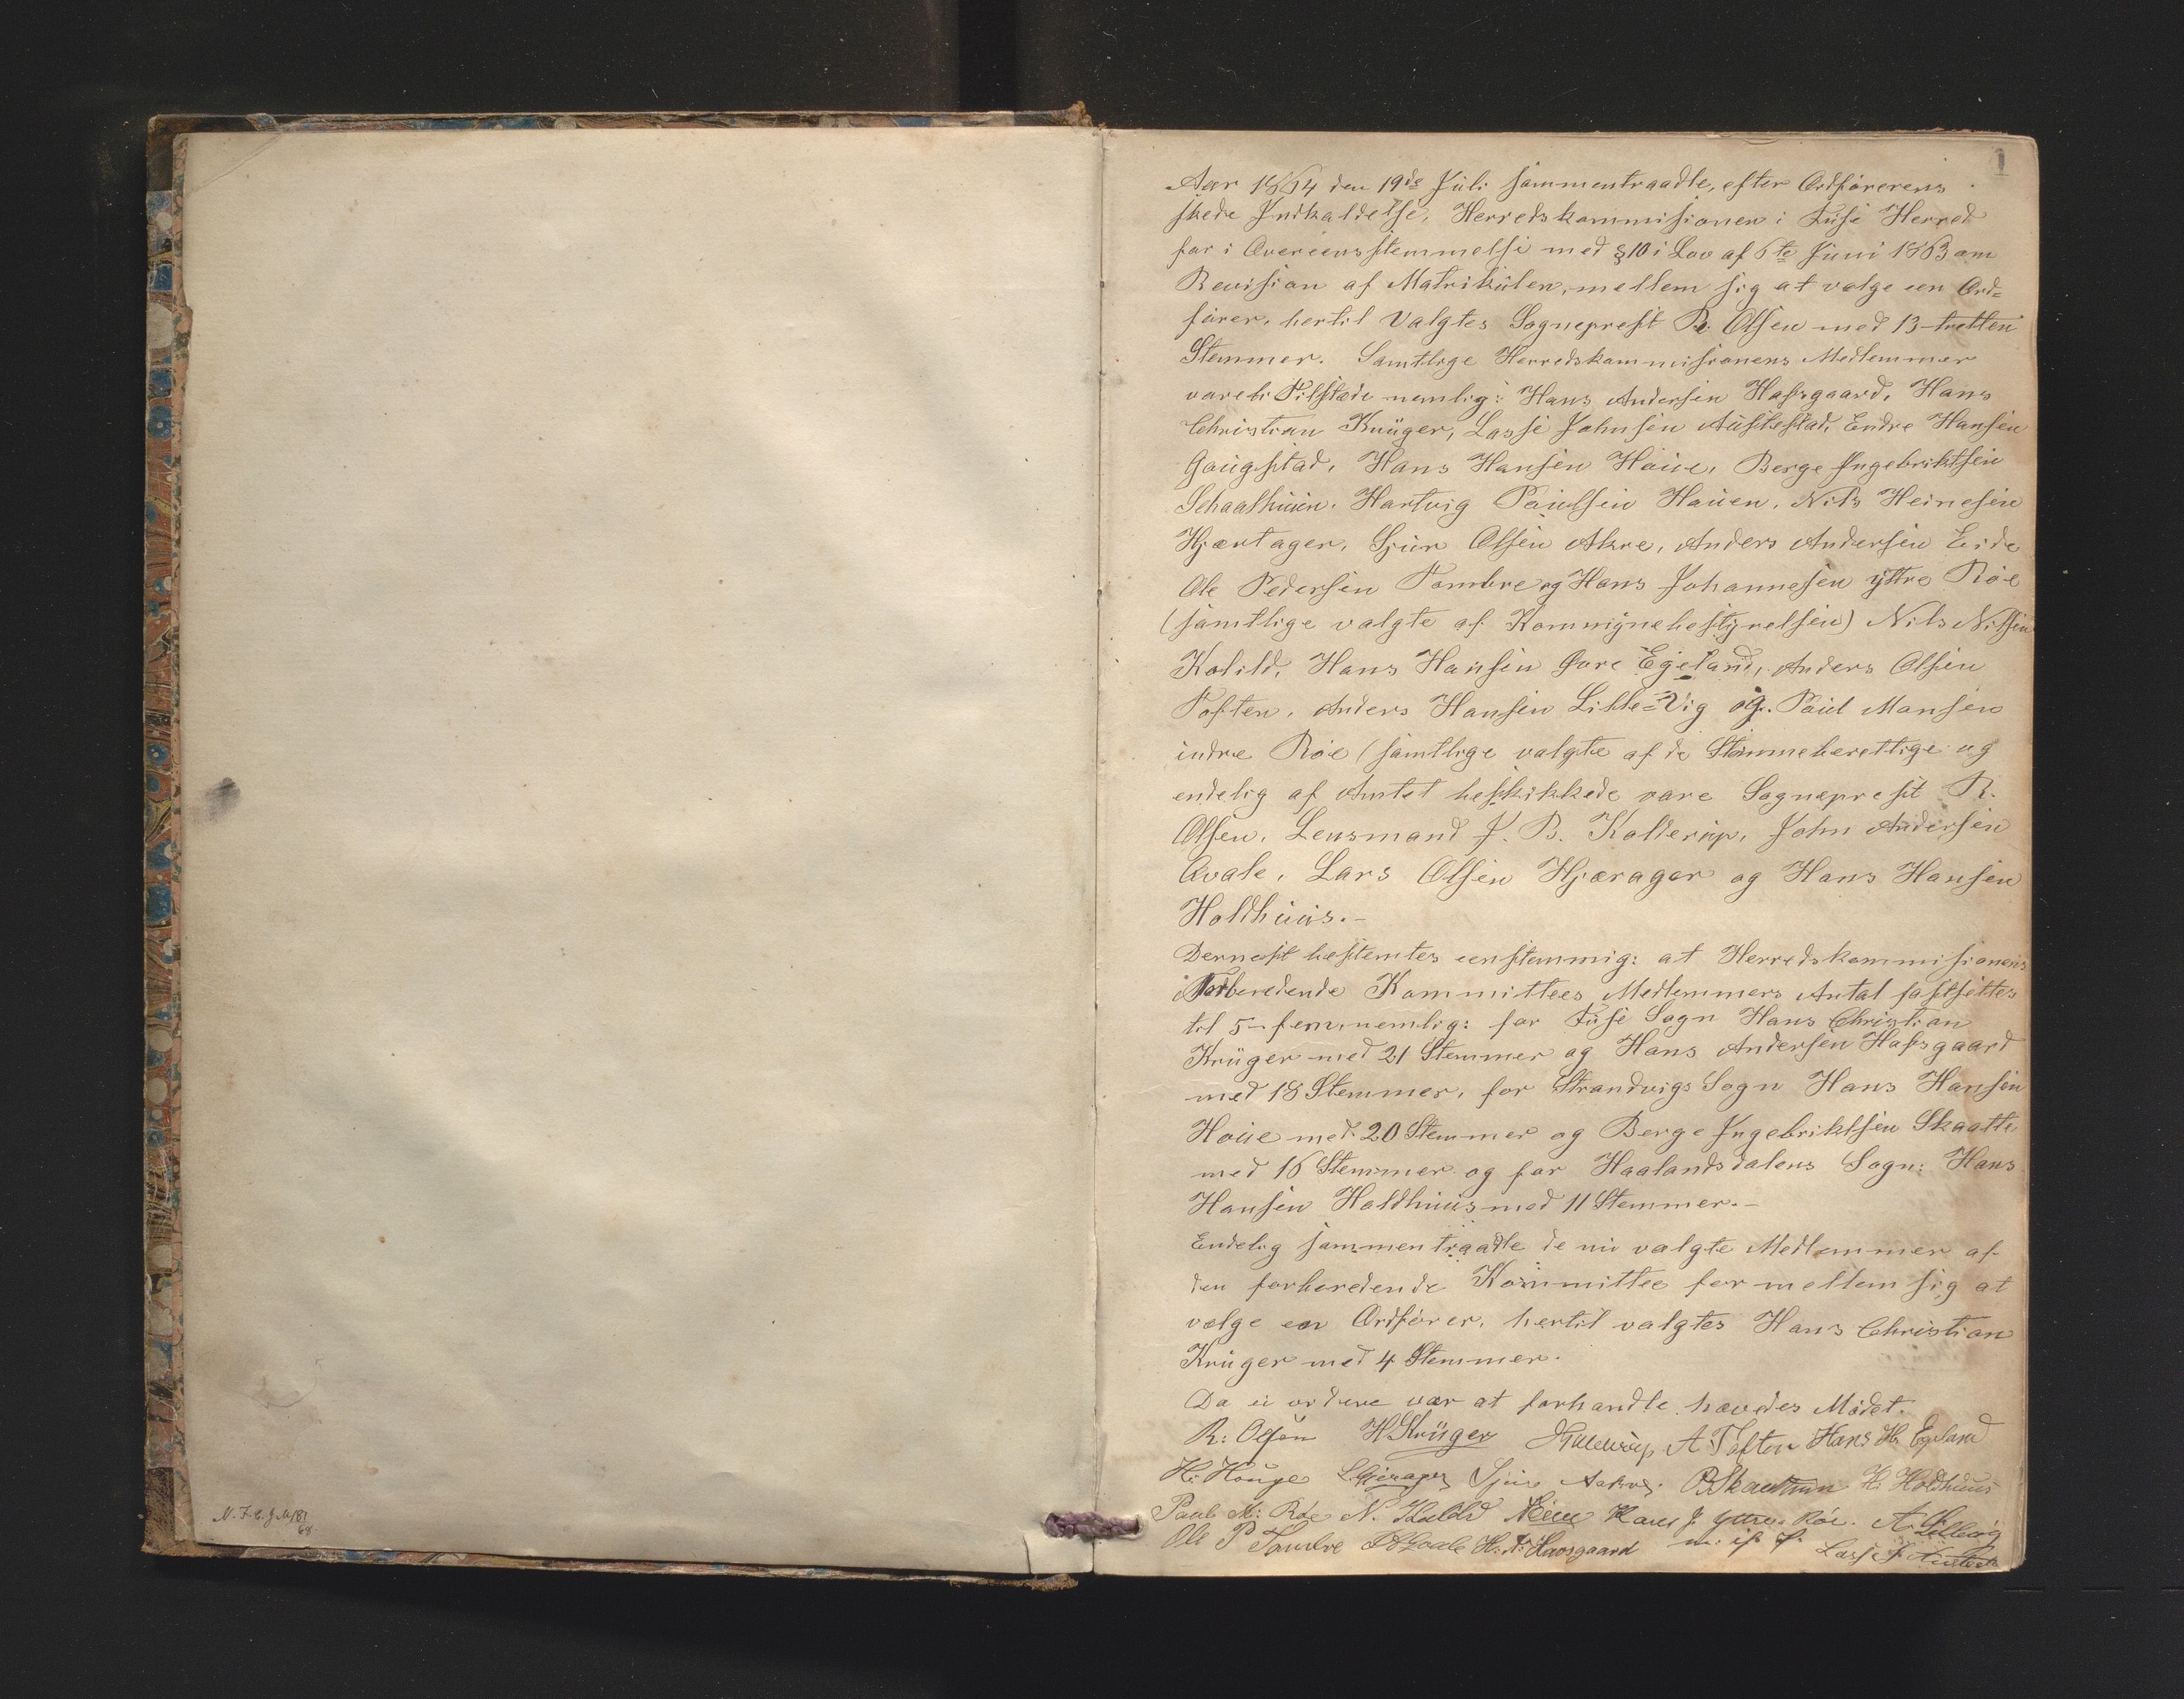 1
Aar 1864 den 19de Juli sammentraadte, efter Ordførerens
skede Indkaldelse, Herredskommisionen i Fuse Herred
for i Overeensstemmelse med § 10 i Lov af 6te Juni 1863 om
Revision af Matrikulen, mellem sig at vælge een Ord=
fører, hertil valgtes Sogneprest R. Olsen med 13 tretten
Stemmer. Samtlige Herredskommisionens Medlemmer
vare Tilstede nemlig: Hans Andersen Hafsgaard, Hans
Christian Krüger, Lasse Johnsen Austestad, Endre Hansen
Gaugstad, Hans Hansen Houe, Berge Ingebriktsen
Schaathuun, Hartvig Paulsen Hauen, Nils Heinesen
Hjærtager, Sjur Olsen Akre, Anders Andersen Eide
Ole Pedersen Tombre og Hans Johannesen yttre Røe
(samtlige valgte af Kommunebestyrelsen) Nils Nilsen
Kolild, Hans Hansen Øvre Egeland, Anders Olsen
Toften, Anders Hansen Litle=Vig og Paul Monsen
indre Røe (samtlige valgte af de Stemmeberettige og
endelig af Amtet beskikkede vare Sogneprest R.
Olsen, Lensmand J. B. Kolderup, John Andersen
Qvale, Lars Olsen Hjærager og Hans Hansen
Holdhuus.-
Dernest bestemtes eenstemmig: at Herredskommisionens
Forberedende Kommittees Medlemmers Antal fastsettes
til 5 - fem, nemlig: for Fuse Sogn Hans Christian
Krüger med 21 Stemmer og Hans Andersen Hafsgaard
med 18 Stemmer, for Strandvigs Sogn Hans Hansen
Houe med 20 Stemmer og Berge Ingebriktsen Skaath
med 16 Stemmer og for Haalandsdalens Sogn: Hans
Hansen Holdhuus med 11 Stemmer.-
Endelig sammentraadte de nu valgte Medlemmer af
den forberedende Kommittee for mellem sig at
vælge en Ordfører, hertil valgtes Hans Christian
Krüger med 4 Stemmer.
Da ei videre var at forhandle hævedes Mødet.
R: Olsen H Krüger A. Toften Hans H. Egeland
H. Houge L. Gjerager Sjur Aakre B Skaathuun H. Holdhuus
Paul M: Røe N. Kolild Hans J. Yttre Røe. A. H. Lillevig
Ole P Tombre J A Qvale H: A: Havsgaard m. i. P. Lasse J.
N. F. E. J. № 181/68